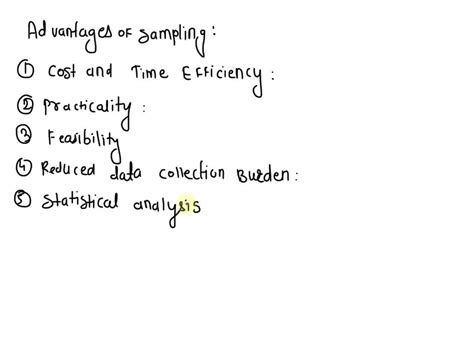 Advantages of sampling:
① Cost and Time Efficiency:
② Practicality:
③ Feasibility
④ Reduced data collection Burden:
⑤ Statistical analysis